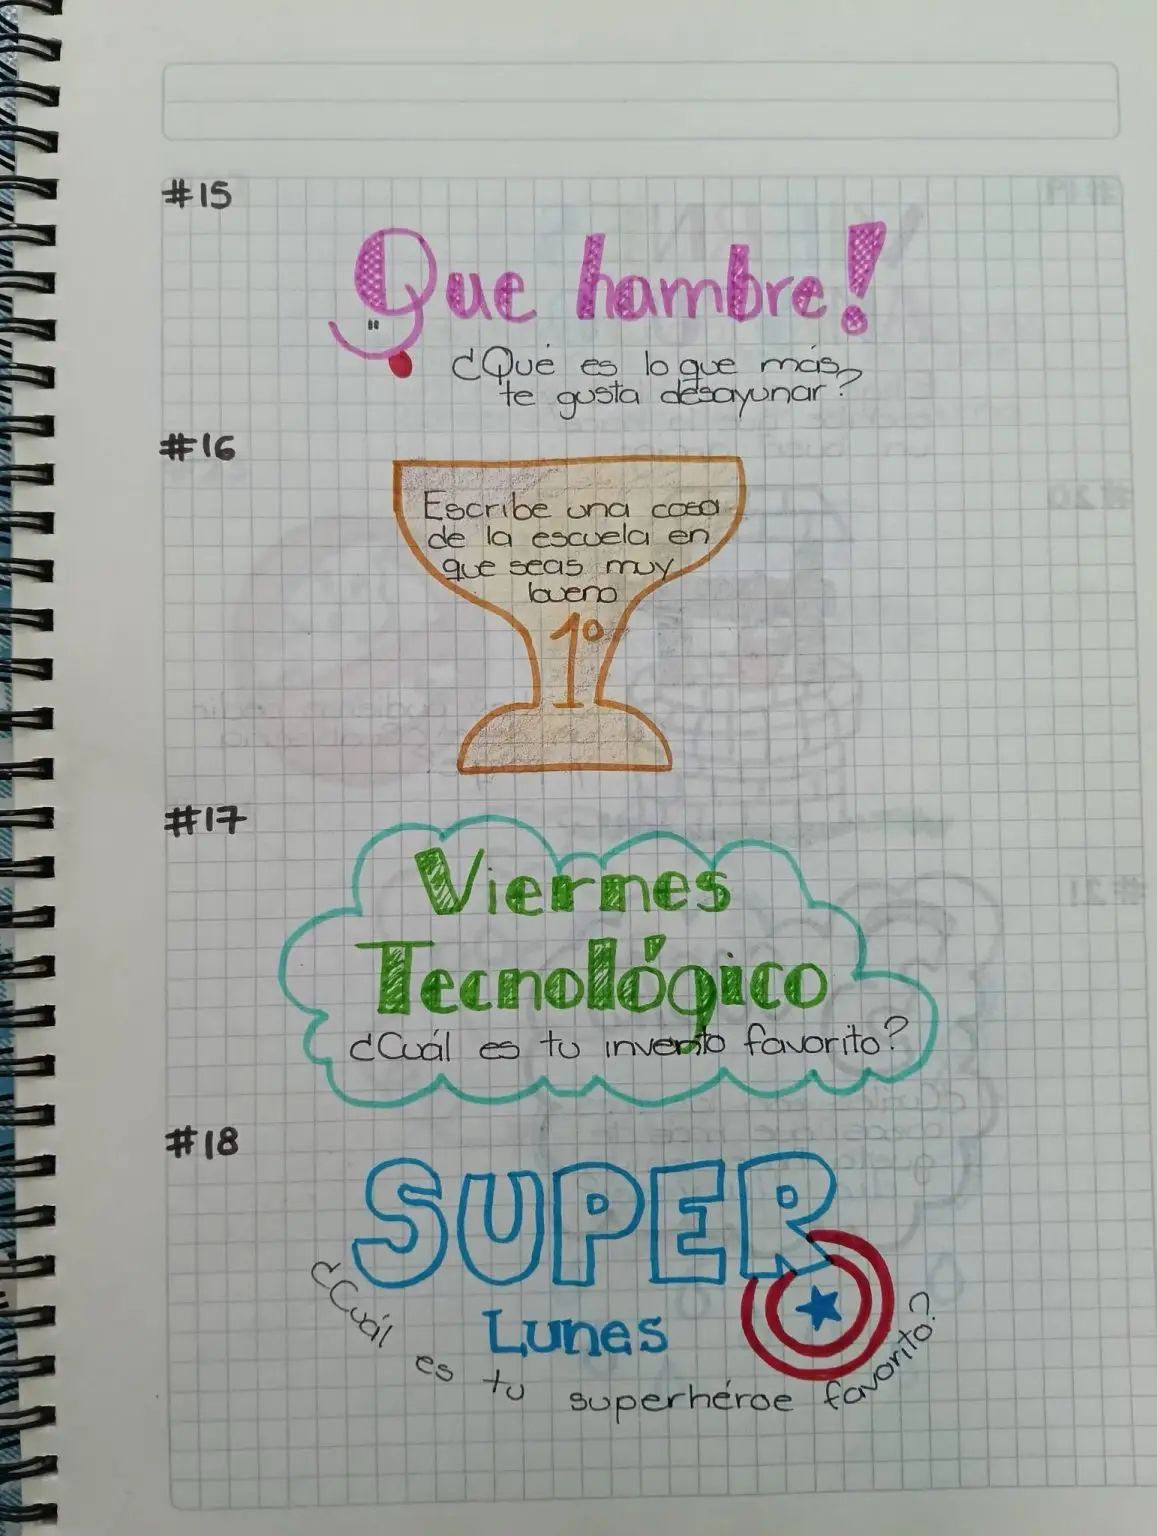 #15
Que hambre!
¿Qué es lo que más
te gusta desayunar?
#16
Escribe una cosa
de la escuela en
que seas muy
bueno
1º
#17
Viernes
Tecnológico
¿Cuál es tu invento favorito?
#18
SUPER
Lunes
¿Cuál es tu superhéroe favorito?